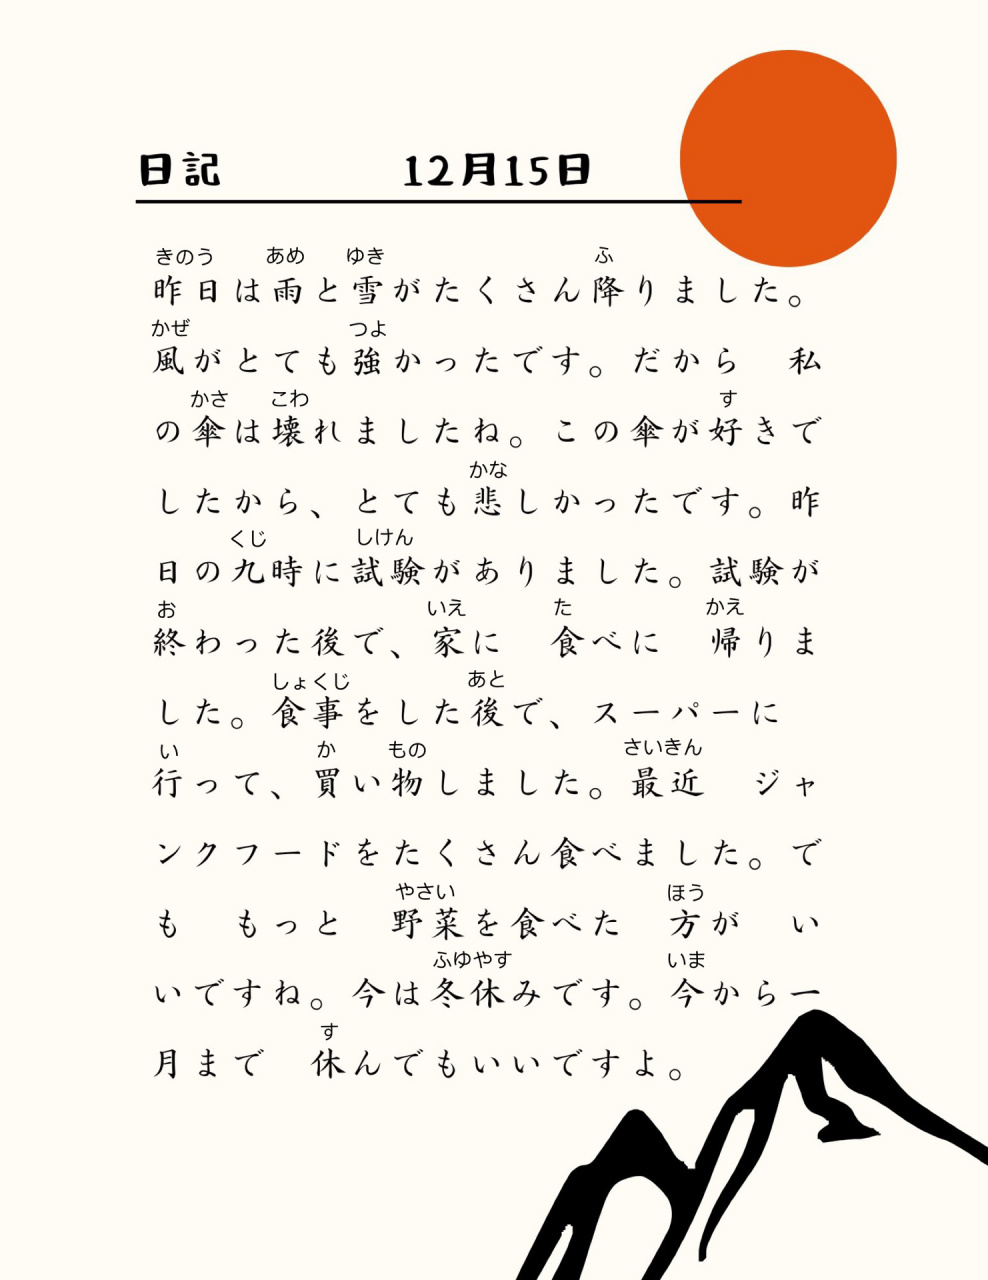 日記 12月15日
きのう あめ ゆき ふ
昨日は雨と雪がたくさん降りました。
かぜ つよ
風がとても強かったです。だから 私
かさ こわ す
の傘は壊れましたね。この傘が好きで
かな
したから、とても悲しかったです。昨
くじ しけん
日の九時に試験がありました。試験が
お いえ た かえ
終わった後で、家に 食べに 帰りま
しょくじ あと
した。食事をした後で、スーパーに
い か もの さいきん
行って、買い物しました。最近 ジャ
ンクフードをたくさん食べました。で
やさい ほう
も もっと 野菜を食べた 方が い
ふゆやす いま
いですね。今は冬休みです。今から一
す
月まで 休んでもいいですよ。